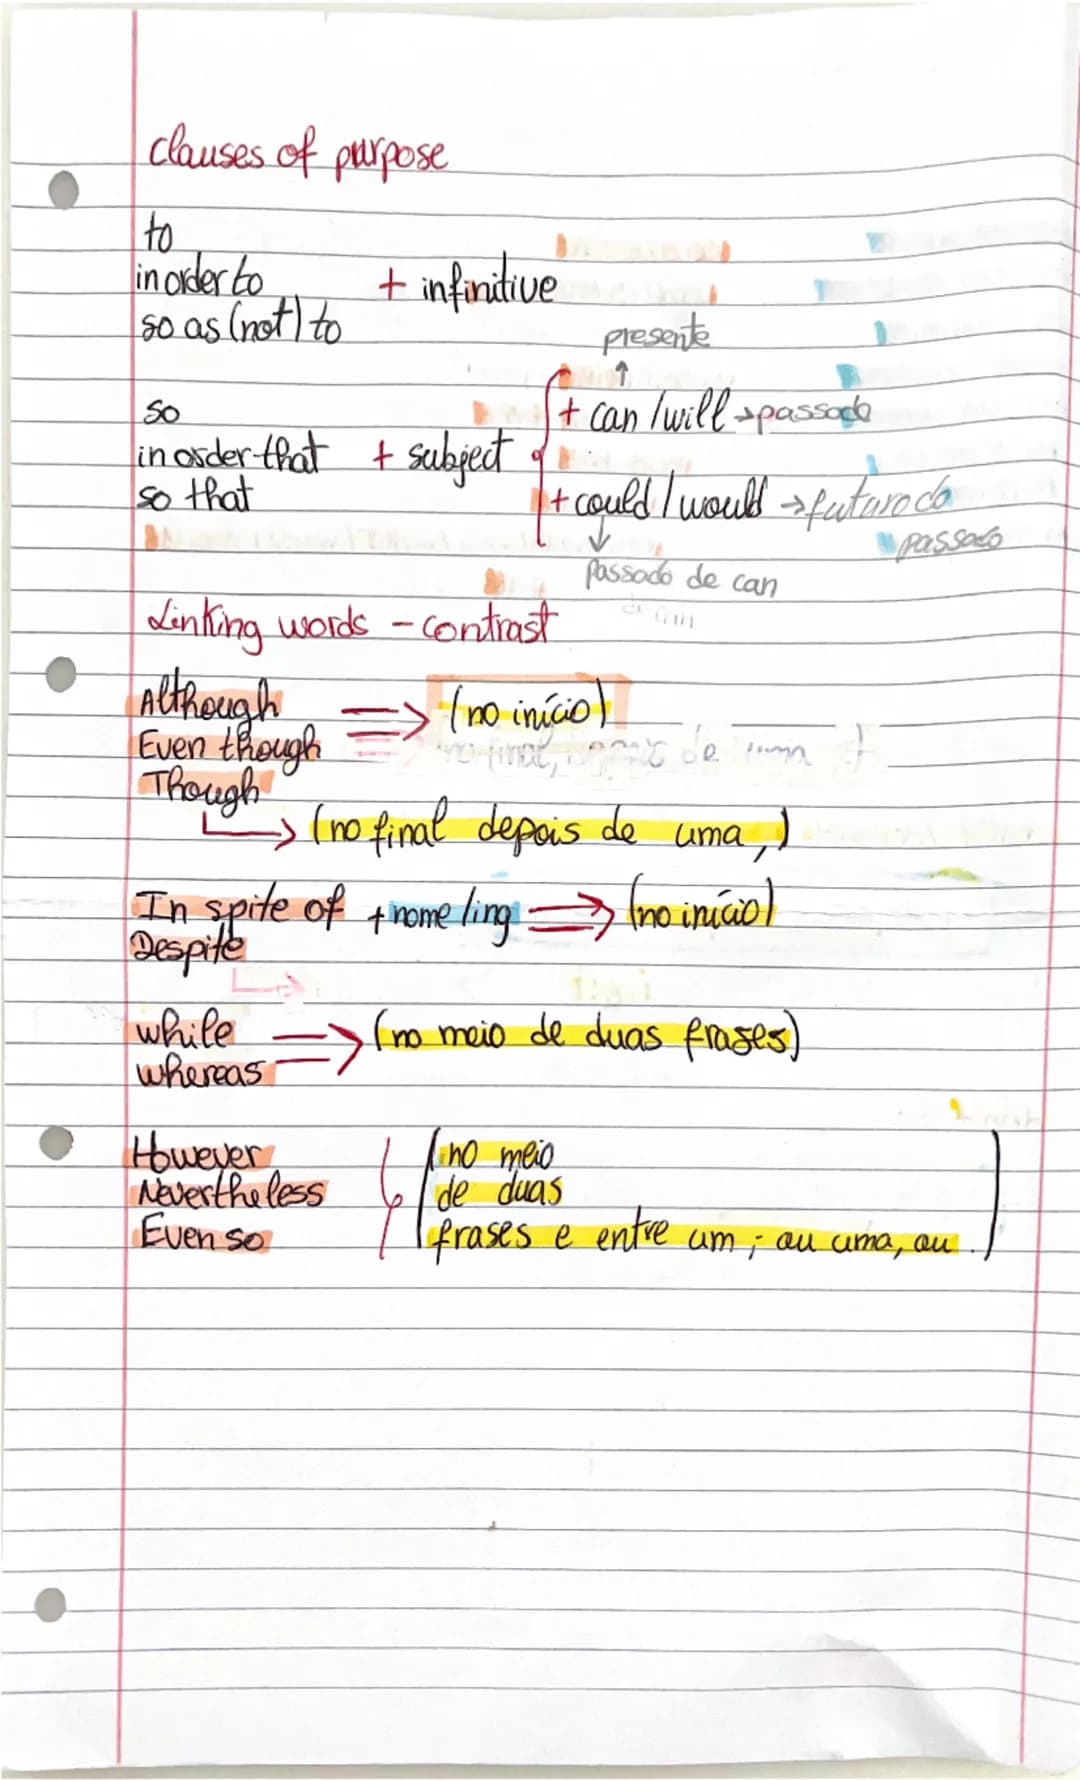 clauses of purpose
to
in order to + infinitive
so as (not) to
presente
↑
so + can /will →passado
in order that + subject
so that + could / would → futuro do
passado
↓
Passado de can
Linking words - contrast
Although ⇒ (no início)
Even though
Though
↳ (no final depois de uma ,)
In spite of + nome /ing ⇒ (no início)
Despite
while ⇒ (no meio de duas frases)
whereas
However (no meio
Nevertheless de duas
Even so frases e entre um ; ou uma, ou .)